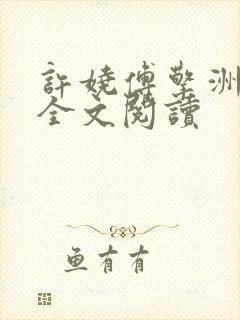 許嬈傅擎洲
全文閱讀
鱼有有